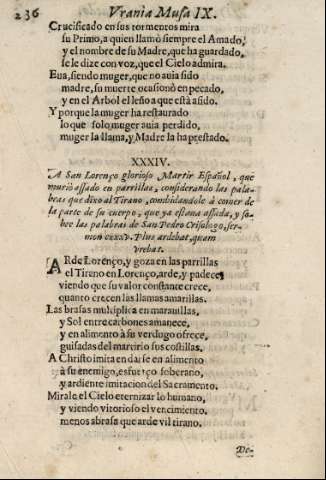 236 Vrania Musa IX.
Crucificado en sus tormentos mira
su Primo, a quien llamò siempre el Amado,
y el nombre de su Madre, que ha guardado,
se le dize con voz, que el Cielo admira.
Eua, siendo muger, que no auia sido
madre, su muerte ocasionò en pecado,
y en el Arbol el leño a que està asido.
Y porque la muger ha restaurado
lo que solo muger auia perdido,
muger la llama, y Madre la ha prestado.
XXXIV.
A San Lorenço glorioso Martir Español, que
murió assado en parrillas, considerando las pala-
bras que dixo al Tirano, combidandole à comer de
la parte de su cuerpo, que ya estaua assada, y so-
bre las palabras de San Pedro Crisologo, ser-
mon cxxxv. Plus ardebat, quam
vrebat.
ARde Lorenço, y goza en las parrillas
el Tirano en Lorenço, arde, y padece,
viendo que su valor constante crece,
quanto crecen las llamas amarillas.
Las brasas multiplica en marauillas,
y Sol entre carbones amanece,
y en alimento à su verdugo ofrece,
guisadas del martirio sus costillas.
A Christo imita en darse en alimento
à su enemigo, esfuerço soberano,
y ardiente imitacion del Sacramento.
Mirale el Cielo eternizar lo humano,
y viendo vitorioso el vencimiento,
menos abrasa que arde vil tirano.
De-